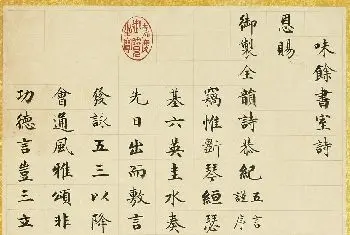 味餘書室詩
恩賜
御製全韻詩恭紀五言謹序
竊惟斲琴絙瑟
基六英主水奏
先日出而敷言
發詠五三以降
會通風雅頌非
功德言豈三立